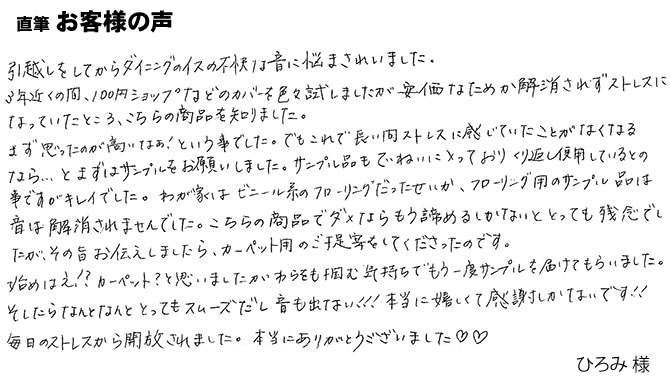 直筆 お客様の声
引越しをしてからダイニングのイスの不快な音に悩まされいました。
3年近くの間、100円ショップなどのカバーを色々試しましたが 安価なためか解消されずストレスに
なっていたところ、こちらの商品を知りました。
まず思ったのが高いなぁ!という事でした。でもこれで長い間ストレスに感じていたことがなくなる
なら…とまずはサンプルをお願いしました。サンプル品もていねいに入っており くり返し使用しているとの
事ですがキレイでした。わが家は ビニール系のフローリングだったせいか、フローリング用のサンプル品は
音は解消されませんでした。こちらの商品でダメならもう諦めるしかないと とっても残念でし
たが、その旨お伝えしましたら、カーペット用のご提案をしてくださったのです。
始めはえ!?カーペット?と思いましたがわらをも掴む気持ちでもう一度サンプルを届けてもらいました。
そしたらなんとなんと とってもスムーズだし音も出ない!!! 本当に嬉しくて感謝しかないです!!
毎日のストレスから開放されました。本当にありがとうございました♡♡
ひろみ 様